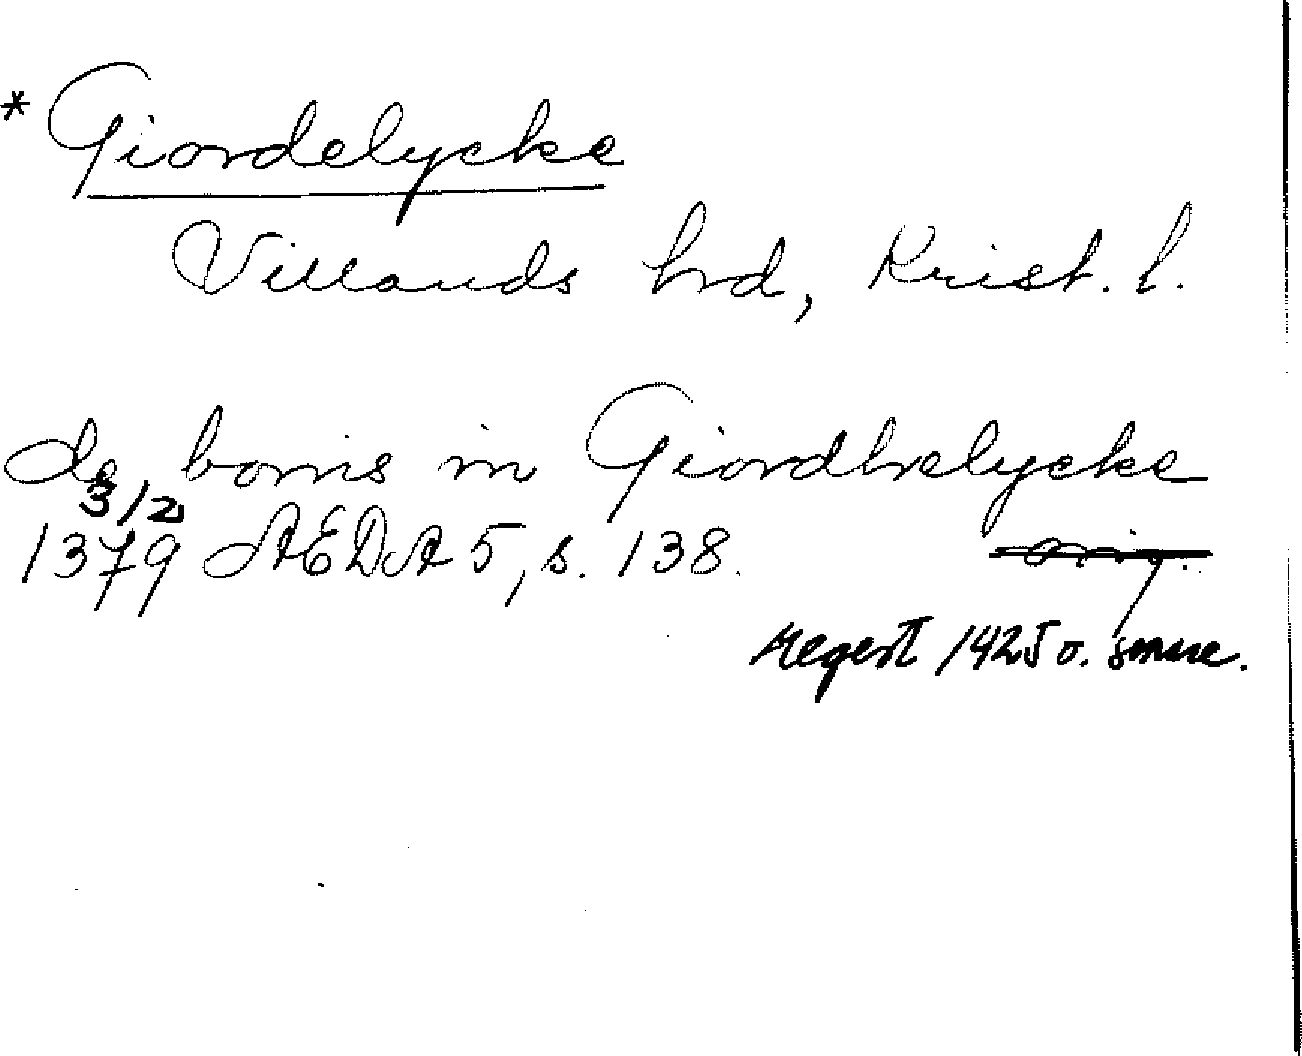 * Giordelycke
Villands hrd, Krist. l.
de bonis in Giordhelycke
3/2
1379 ÆDA 5, s. 138. orig.
regest 1425 o. senare.